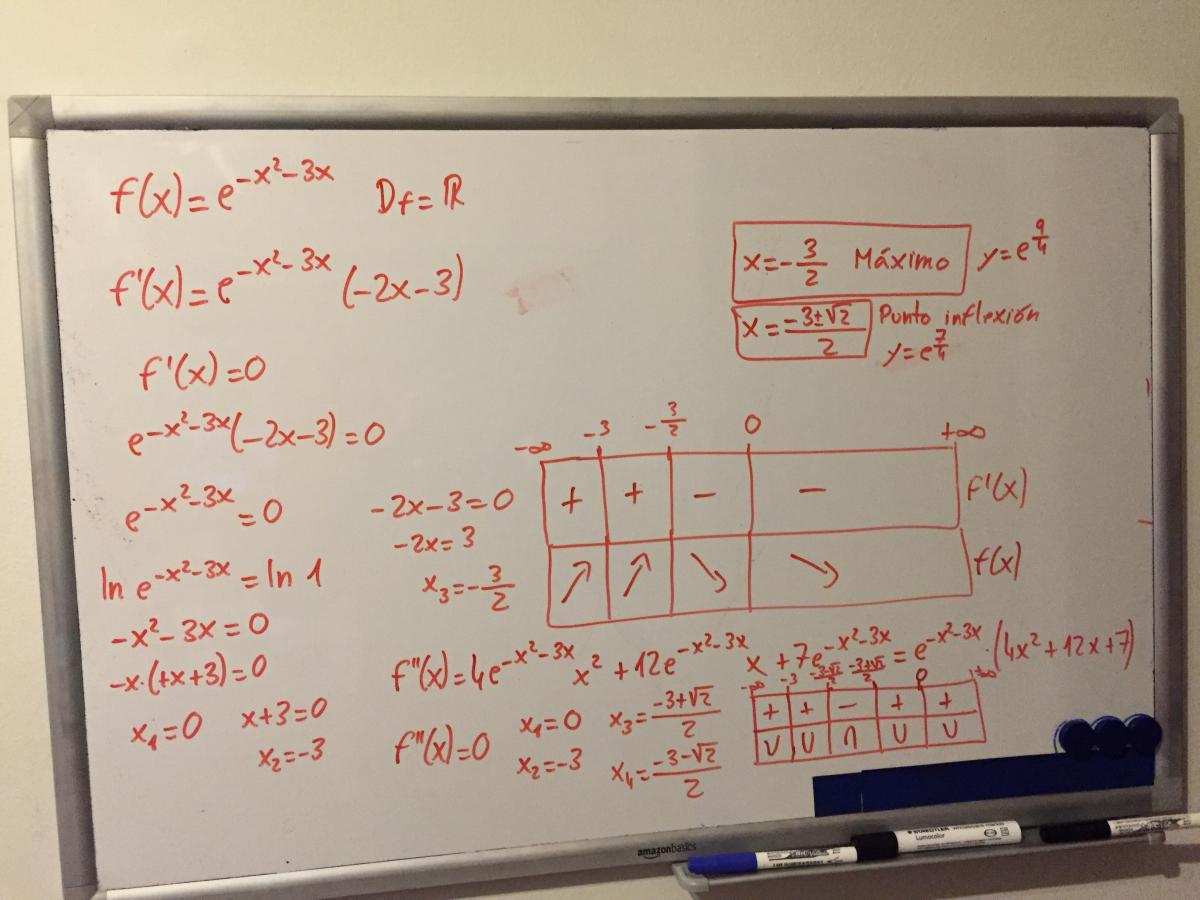 f(x) = e^{-x²-3x}   Df = ℝ
f'(x) = e^{-x²-3x} (-2x-3)
f'(x) = 0
e^{-x²-3x} (-2x-3) = 0
e^{-x²-3x} = 0
ln e^{-x²-3x} = ln 1
-x²-3x = 0
-x·(+x+3) = 0
x₁ = 0   x+3 = 0
x₂ = -3
-2x-3 = 0
-2x = 3
x₃ = -3/2
x = -3/2 Máximo   y = e^{9/4}
x = (-3±√2)/2   Punto inflexión
y = e^{7/4}
-∞   -3   -3/2   0   +∞
+   +   -   -   f'(x)
↗   ↗   ↘   ↘   f(x)
f''(x) = 4e^{-x²-3x} x² + 12e^{-x²-3x} x + 7e^{-x²-3x} = e^{-x²-3x}·(4x²+12x+7)
f''(x) = 0   x₁ = 0   x₃ = (-3+√2)/2
x₂ = -3   x₄ = (-3-√2)/2
-∞   -3   (-3-√2)/2   (-3+√2)/2   0   +∞
+   +   -   +   +
∪   ∪   ∩   ∪   ∪
amazonbasics
STAEDTLER
Lumocolor